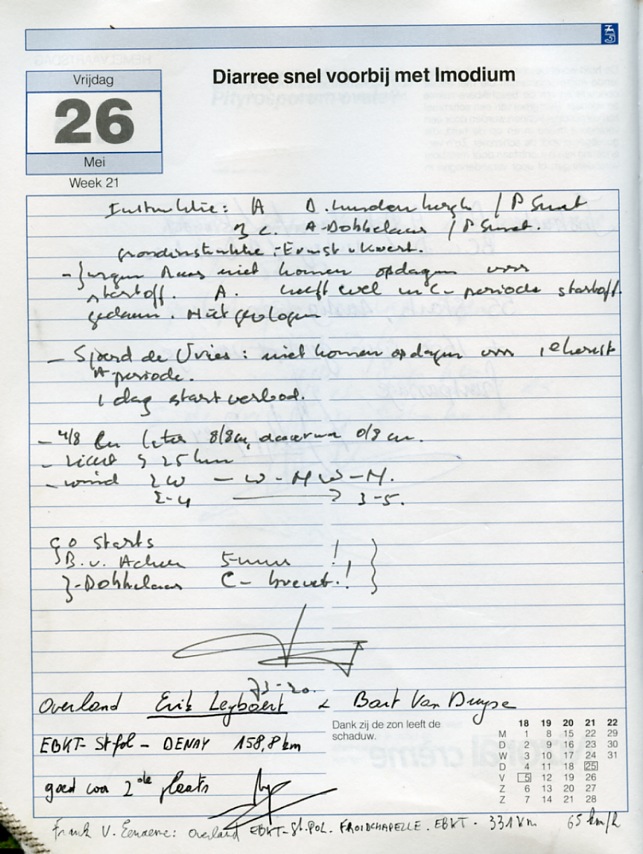 Vrijdag
26
Mei
Week 21
Diarree snel voorbij met Imodium
Instruktie: A D. / P Smet
3 C. A-Dobbelaus / P Smet.
grondinstruktie - Ernst v
- Jurgen niet komen opdagen voor
startoff. A. heeft wel in C-periode startoff
gedaan. Niet gevlogen
- Sjoerd de Vries: niet komen opdagen voor 1e
A periode.
1 dag start verbod.
- 4/8 Cu later 8/8 cu, daarna 0/8 cu.
- zicht > 25 km
- wind ZW - W - NW - N.
2-4 3-5.
90 starts
B. v. Acker 5-uur !
J-Dobbelaus C-brevet!!
Overland Erik Leybaert & Bart Van Duyse
EBKT - St Pol - DENAY 158,8 km
goed voor 2de plaats
Frank V. : overland EBKT - St. POL. FROIDCHAPELLE. EBKT - 331 km 65 km/h
Dank zij de zon leeft de
schaduw.
18 19 20 21 22
M 1 8 15 22 29
D 2 9 16 23 30
W 3 10 17 24 31
D 4 11 18 25
V 5 12 19 26
Z 6 13 20 27
Z 7 14 21 28